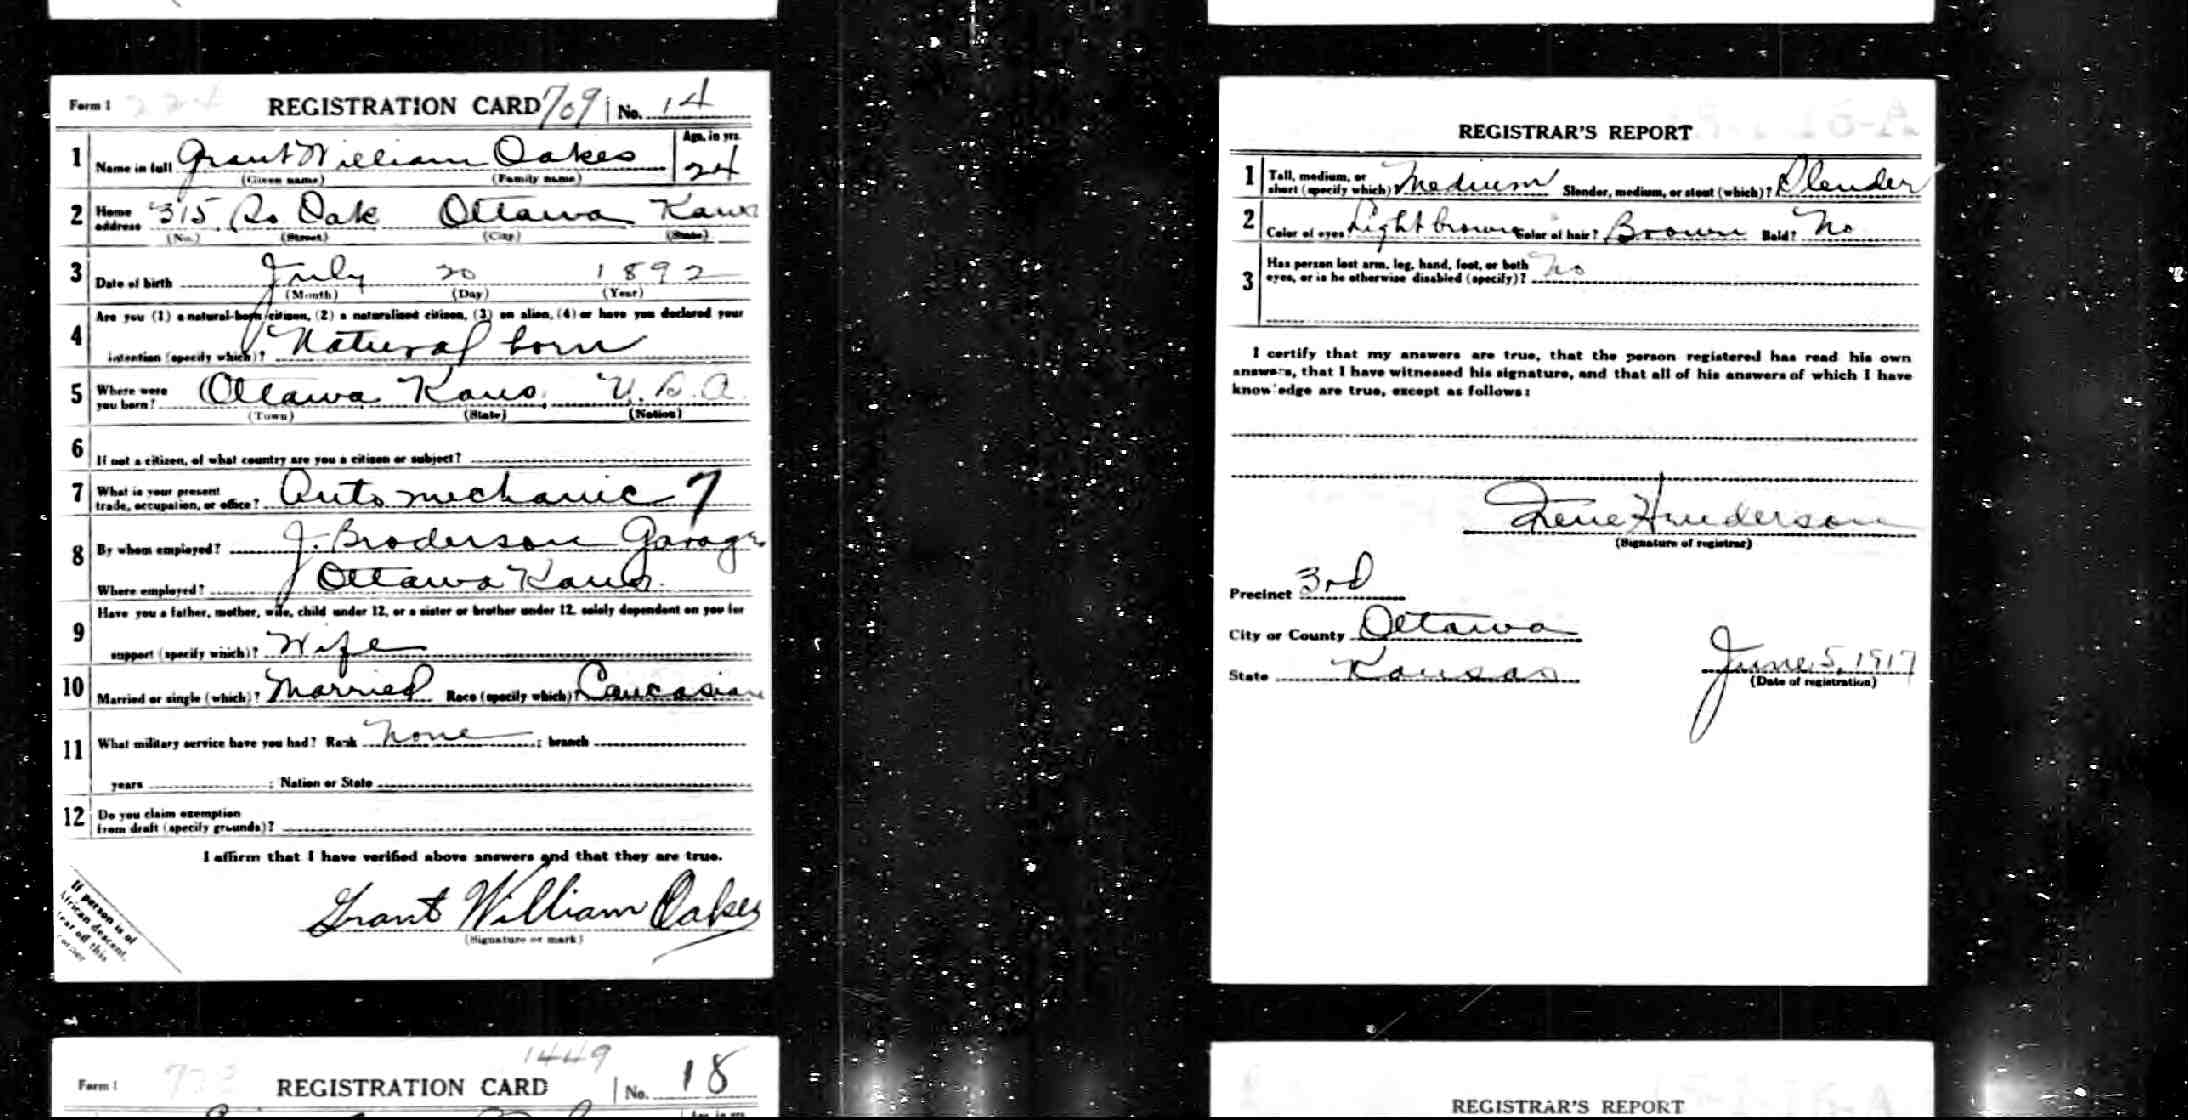 Form 1 224 REGISTRATION CARD 709 No. 14
1 Name in full Grant William Oakes Age, in yrs. 24
(Given name) (Family name)
2 Home address 315 So Oak Ottawa Kans
(No.) (Street) (City) (State)
3 Date of birth July 20 1892
(Month) (Day) (Year)
4 Are you (1) a natural-born citizen, (2) a naturalized citizen, (3) an alien, (4) or have you declared your
intention (specify which)? Natural born
5 Where were you born? Ottawa Kans. U.S.A.
(Town) (State) (Nation)
6 If not a citizen, of what country are you a citizen or subject?
7 What is your present trade, occupation, or office? Auto mechanic 7
8 By whom employed? J. Broderson Garage
Where employed? Ottawa Kans.
9 Have you a father, mother, wife, child under 12, or a sister or brother under 12, solely dependent on you for
support (specify which)? Wife
10 Married or single (which)? Married Race (specify which)? Caucasian
11 What military service have you had? Rank None ; branch
years ; Nation or State
12 Do you claim exemption
from draft (specify grounds)?
I affirm that I have verified above answers and that they are true.
Grant William Oakes
(Signature or mark)
If person is of
African descent,
tear off this
corner
REGISTRAR'S REPORT
1 Tall, medium, or short (specify which)? Medium Slender, medium, or stout (which)? Slender
2 Color of eyes Light brown Color of hair? Brown Bald? No
3 Has person lost arm, leg, hand, foot, or both
eyes, or is he otherwise disabled (specify)? No
I certify that my answers are true, that the person registered has read his own
answers, that I have witnessed his signature, and that all of his answers of which I have
knowledge are true, except as follows:
Irene Henderson
(Signature of registrar)
Precinct 3rd
City or County Ottawa
State Kansas
June 5, 1917
(Date of registration)
Form 1 1449 REGISTRATION CARD No. 18
Age, in yrs.
REGISTRAR'S REPORT